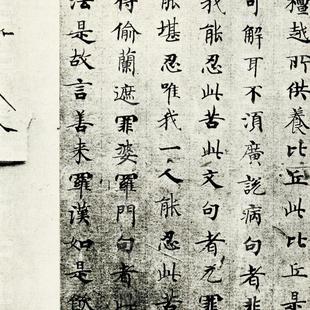 檀越所供養比丘此比丘是
可解耳不須廣說病句者非
我能忍此苦此文句者无罪
能堪忍唯我一人能忍此苦
得偷蘭遮罪婆羅門句者此
法是故言善来羅漢如是飲